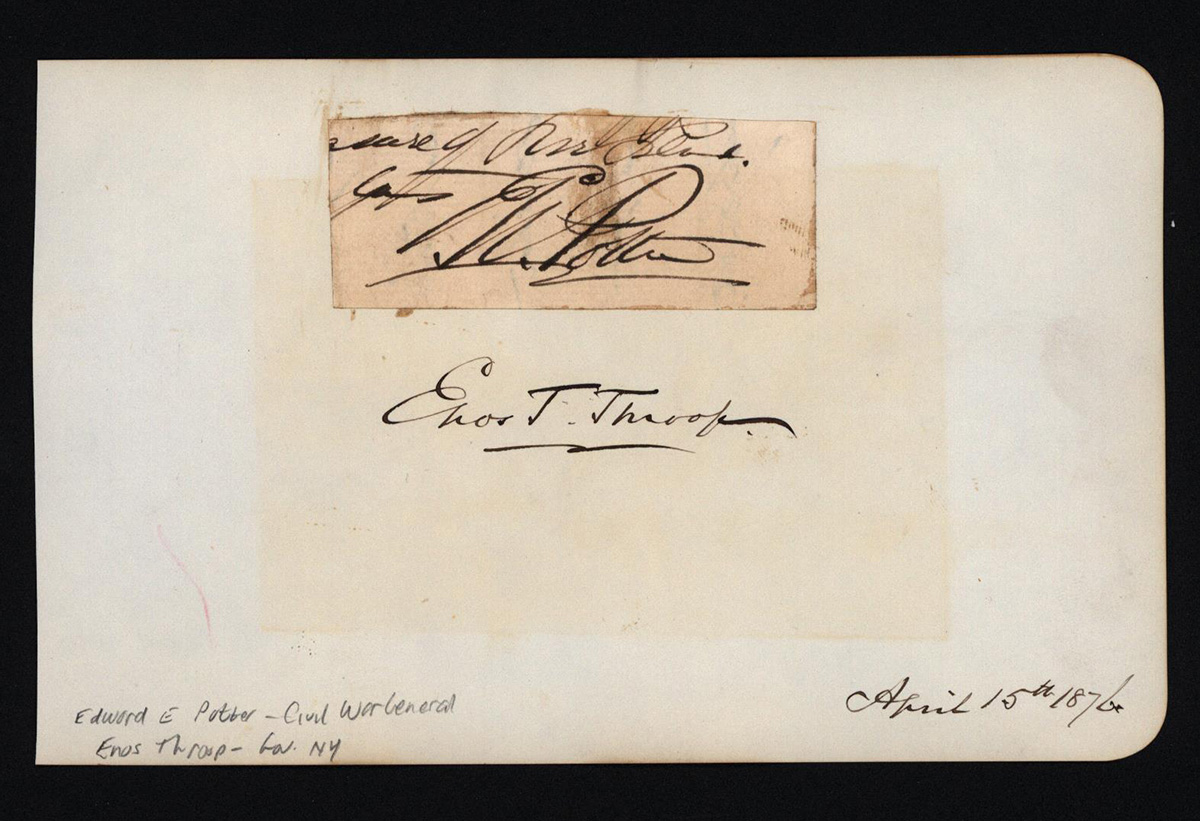 of
Potter
Enos T. Throop.
April 15th 1876.
Edward E Potter - Civil War General
Enos Throop - Gov. NY